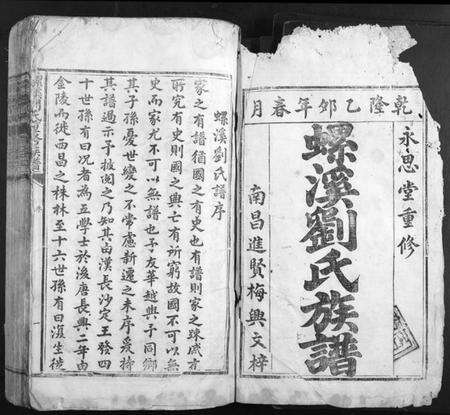 乾隆乙卯年春月
永思堂重修
螺溪劉氏族譜
南昌進賢梅興文梓
螺溪劉氏譜序
家之有譜猶國之有史也有譜則家之踈戚才
所究有史則國之興亡有所窮故國不可以無
史而家尤不可以無譜也予友華趙與予同鄉
其子孫憂世變之不常慮新遷之未序爰持
其譜過示予披閱之乃知其由漢長沙定王發四
十世孫有曰况者為立學士於後唐長興二年由
金陵而徙西昌之株林至十六世孫有曰復生徙